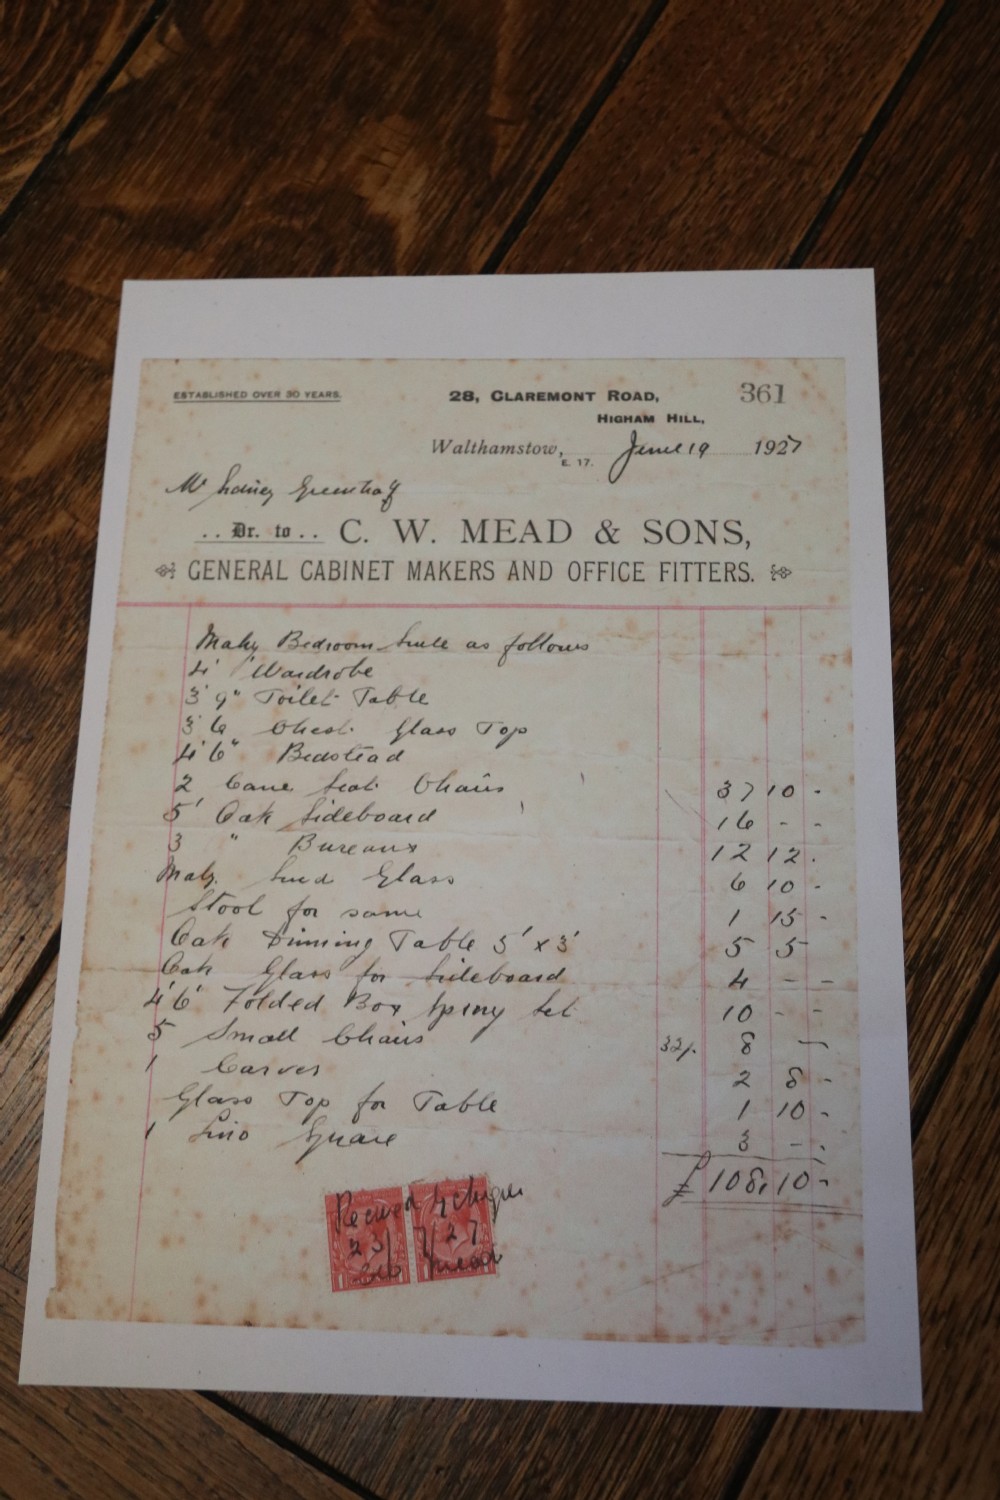 ESTABLISHED OVER 30 YEARS.
28, CLAREMONT ROAD,
361
HIGHAM HILL,
Walthamstow, E. 17. June 19 1927
Mr Greenhalf
.. Dr. to .. C. W. MEAD & SONS,
GENERAL CABINET MAKERS AND OFFICE FITTERS.
Mahy Bedroom Suite as follows
4' Wardrobe
3' 9" Toilet Table
3' 6 Chest Glass Top
4' 6" Bedstead
2 Cane Seat Chairs 37 10 -
5' Oak Sideboard 16 - -
3 " Bureaus 12 12 .
Mahy. Glass 6 10 -
Stool for same 1 15 -
Oak Dinning Table 5' x 3' 5 5
Oak Glass for Sideboard 4 - -
4' 6' Folded Box Spring Set 10 - -
5 Small Chairs 32/. 8 -
1 Carver 2 8 -
Glass Top for Table 1 10 -
1 Lino Square 3 - .
£108.10 -
Received by cheque
23/7/27
Mead